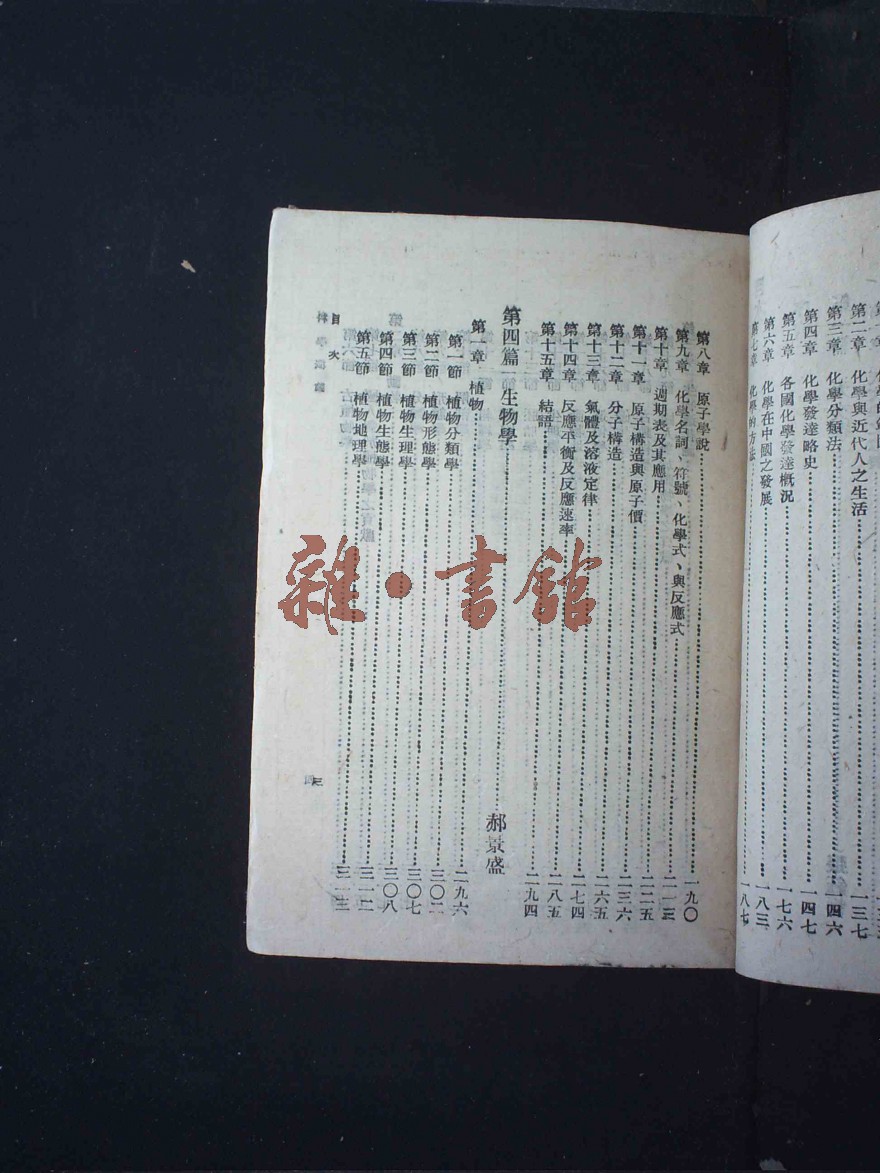 第二章　化學與近代人之生活……一三七
第三章　化學分類法……一四六
第四章　化學發達略史……一四七
第五章　各國化學發達概況……一七六
第六章　化學在中國之發展……一八三
第七章　化學的方法……一八七
第八章　原子學說……一九〇
第九章　化學名詞、符號、化學式、與反應式……二一三
第十章　週期表及其應用……二二五
第十一章　原子構造與原子價……二三六
第十二章　分子構造……二六五
第十三章　氣體及溶液定律……二七四
第十四章　反應平衡及反應速率……二八五
第十五章　結語……二九四
第四篇　生物學……郝景盛
第一章　植物……二九六
第一節　植物分類學……三〇二
第二節　植物形態學……三〇七
第三節　植物生理學……三〇八
第四節　植物生態學……三一二
第五節　植物地理學……三一三
目次
三
雜·書館